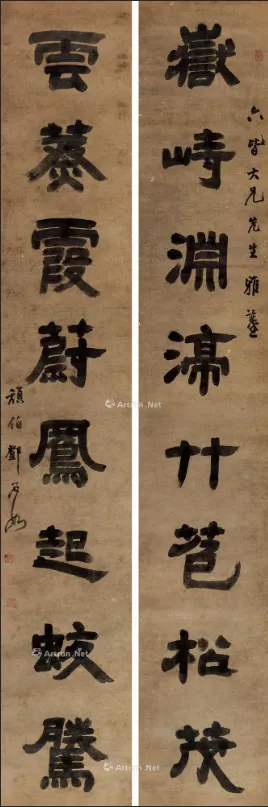 六皆大兄先生雅鑒
嶽峙淵渟竹苞松茂
雲蒸霞蔚鳳起蛟騰
頑伯鄧石如
Artron.Net
Artron.Net
Artron.Net
Artron.Net